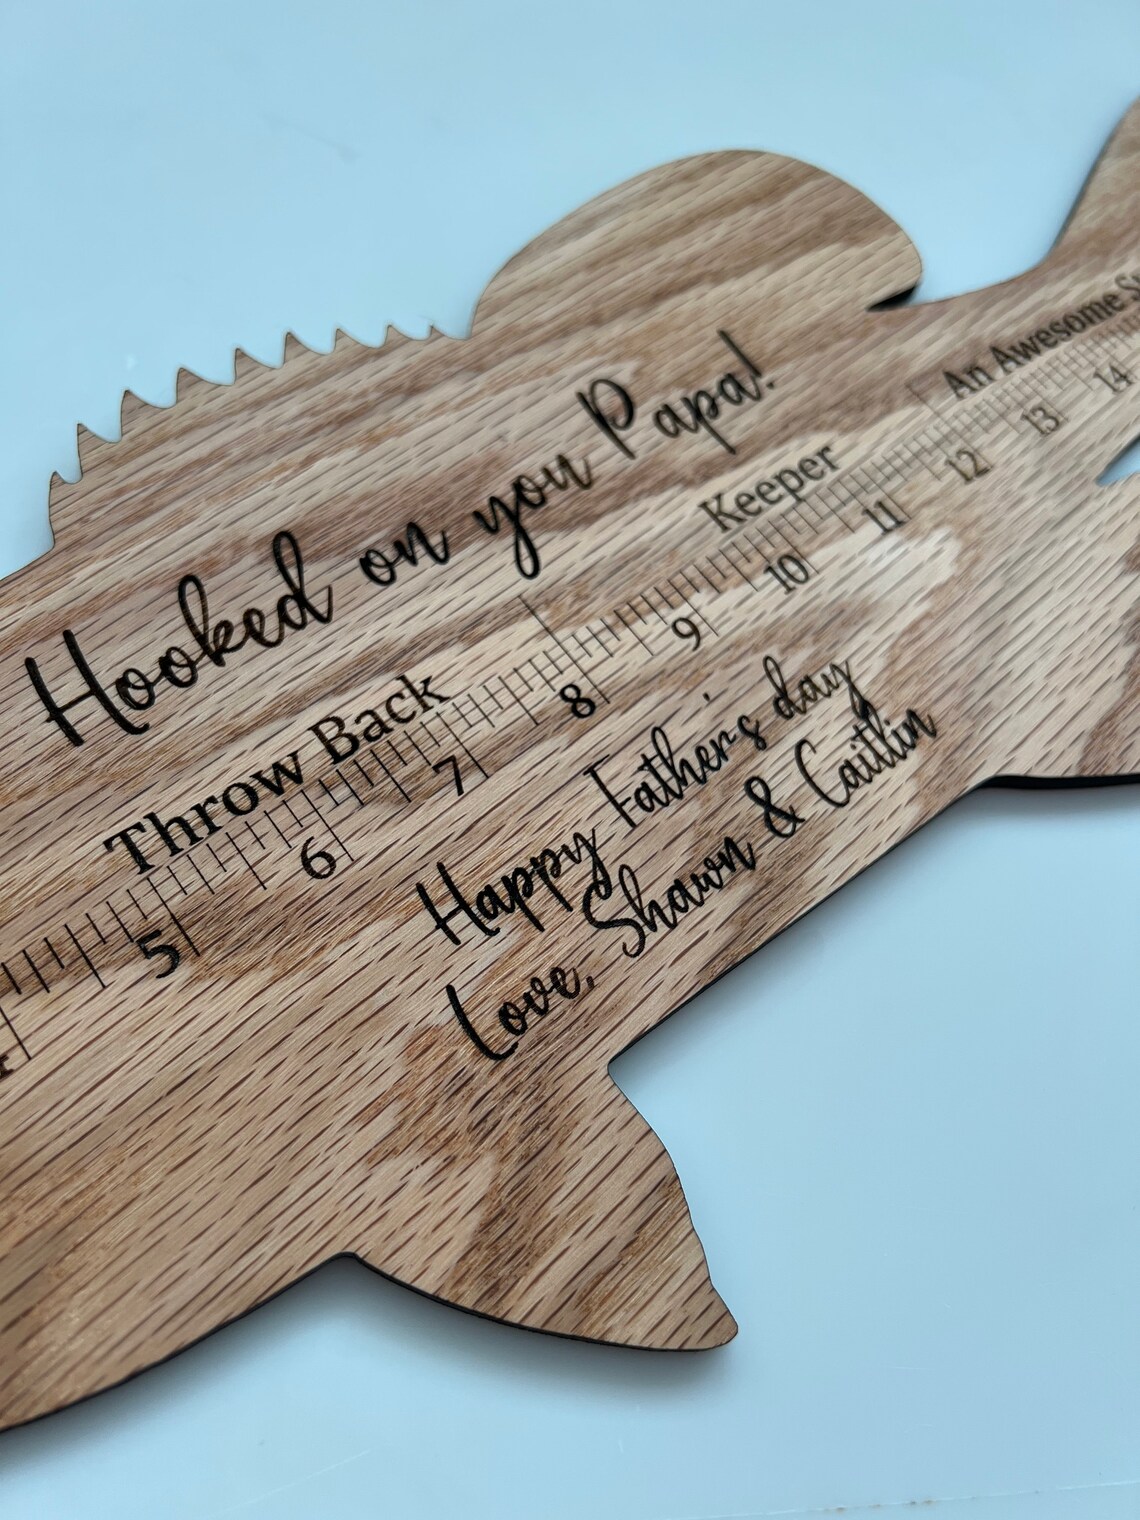 Hooked on you Papa!
Throw Back
Keeper
An Awesome
5 6 7 8 9 10 11 12 13 14
Happy Father's day
Love, Shawn & Caitlin